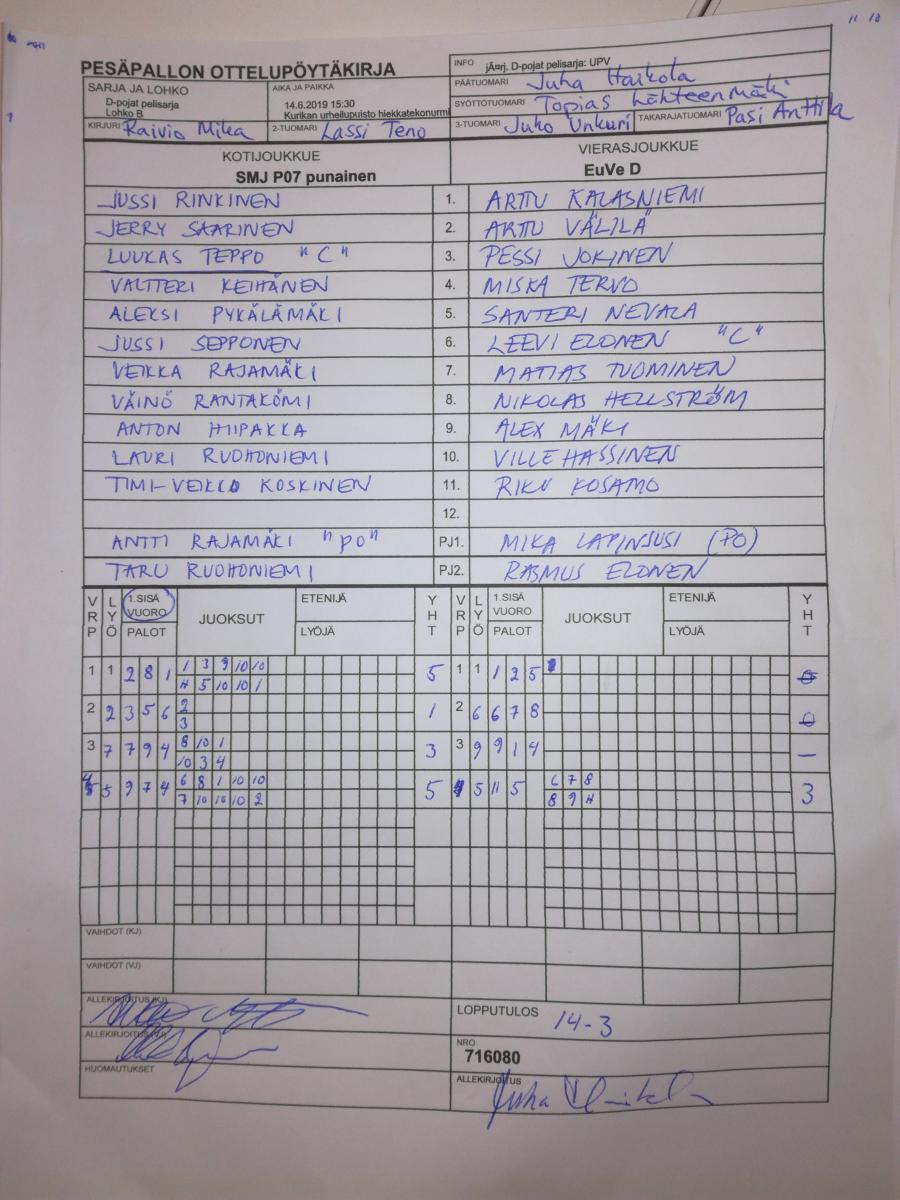 PESÄPALLON OTTELUPÖYTÄKIRJA
INFO jÄ¤rj. D-pojat pelisarja: UPV
SARJA JA LOHKO
D-pojat pelisarja
Lohko B
AIKA JA PAIKKA
14.6.2019 15:30
Kurikan urheilupuisto hiekkatekonurmi
PÄÄTUOMARI Juha Haikola
SYÖTTÖTUOMARI Topias Lähteenmäki
KIRJURI Raivio Mika 2-TUOMARI Lassi Teno 3-TUOMARI Juho Unkuri TAKARAJATUOMARI Pasi Anttila
KOTIJOUKKUE VIERASJOUKKUE
SMJ P07 punainen EuVe D
JUSSI RINKINEN 1. ARTTU KALASNIEMI
JERRY SAARINEN 2. ARTTU VÄLILÄ
LUUKAS TEPPO "C" 3. PESSI JOKINEN
VALTTERI KEIHÄNEN 4. MISKA TERVO
ALEKSI PYKÄLÄMÄKI 5. SANTERI NEVALA
JUSSI SEPPONEN 6. LEEVI ELONEN "C"
VEIKKA RAJAMÄKI 7. MATIAS TUOMINEN
VÄINÖ RANTAKÖMI 8. NIKOLAS HELLSTRÖM
ANTON HIIPAKKA 9. ALEX MÄKI
LAURI RUOHONIEMI 10. VILLE HASSINEN
TIMI-VEIKKO KOSKINEN 11. RIKU KOSAMO
12.
ANTTI RAJAMÄKI "PO" PJ1. MIKA LAPINSUSI (PO)
TARU RUOHONIEMI PJ2. RASMUS ELONEN
VRP LYÖ 1.SISÄ VUORO PALOT JUOKSUT ETENIJÄ LYÖJÄ YHT VRP LYÖ 1.SISÄ VUORO PALOT JUOKSUT ETENIJÄ LYÖJÄ YHT
1 1 2 8 1 1 3 9 10 10 5 1 1 1 2 5 0
4 5 10 10 1
2 2 3 5 6 2 1 2 6 6 7 8 0
3
3 7 7 9 4 8 10 1 3 3 9 9 1 4 –
10 3 4
5 9 7 4 6 8 1 10 10 5 5 11 5 6 7 8 3
7 10 10 10 2 8 9 11
VAIHDOT (KJ)
VAIHDOT (VJ)
ALLEKIRJOITUS (KJ)
LOPPUTULOS 14-3
ALLEKIRJOITUS (VJ)
NRO
716080
HUOMAUTUKSET
ALLEKIRJOITUS